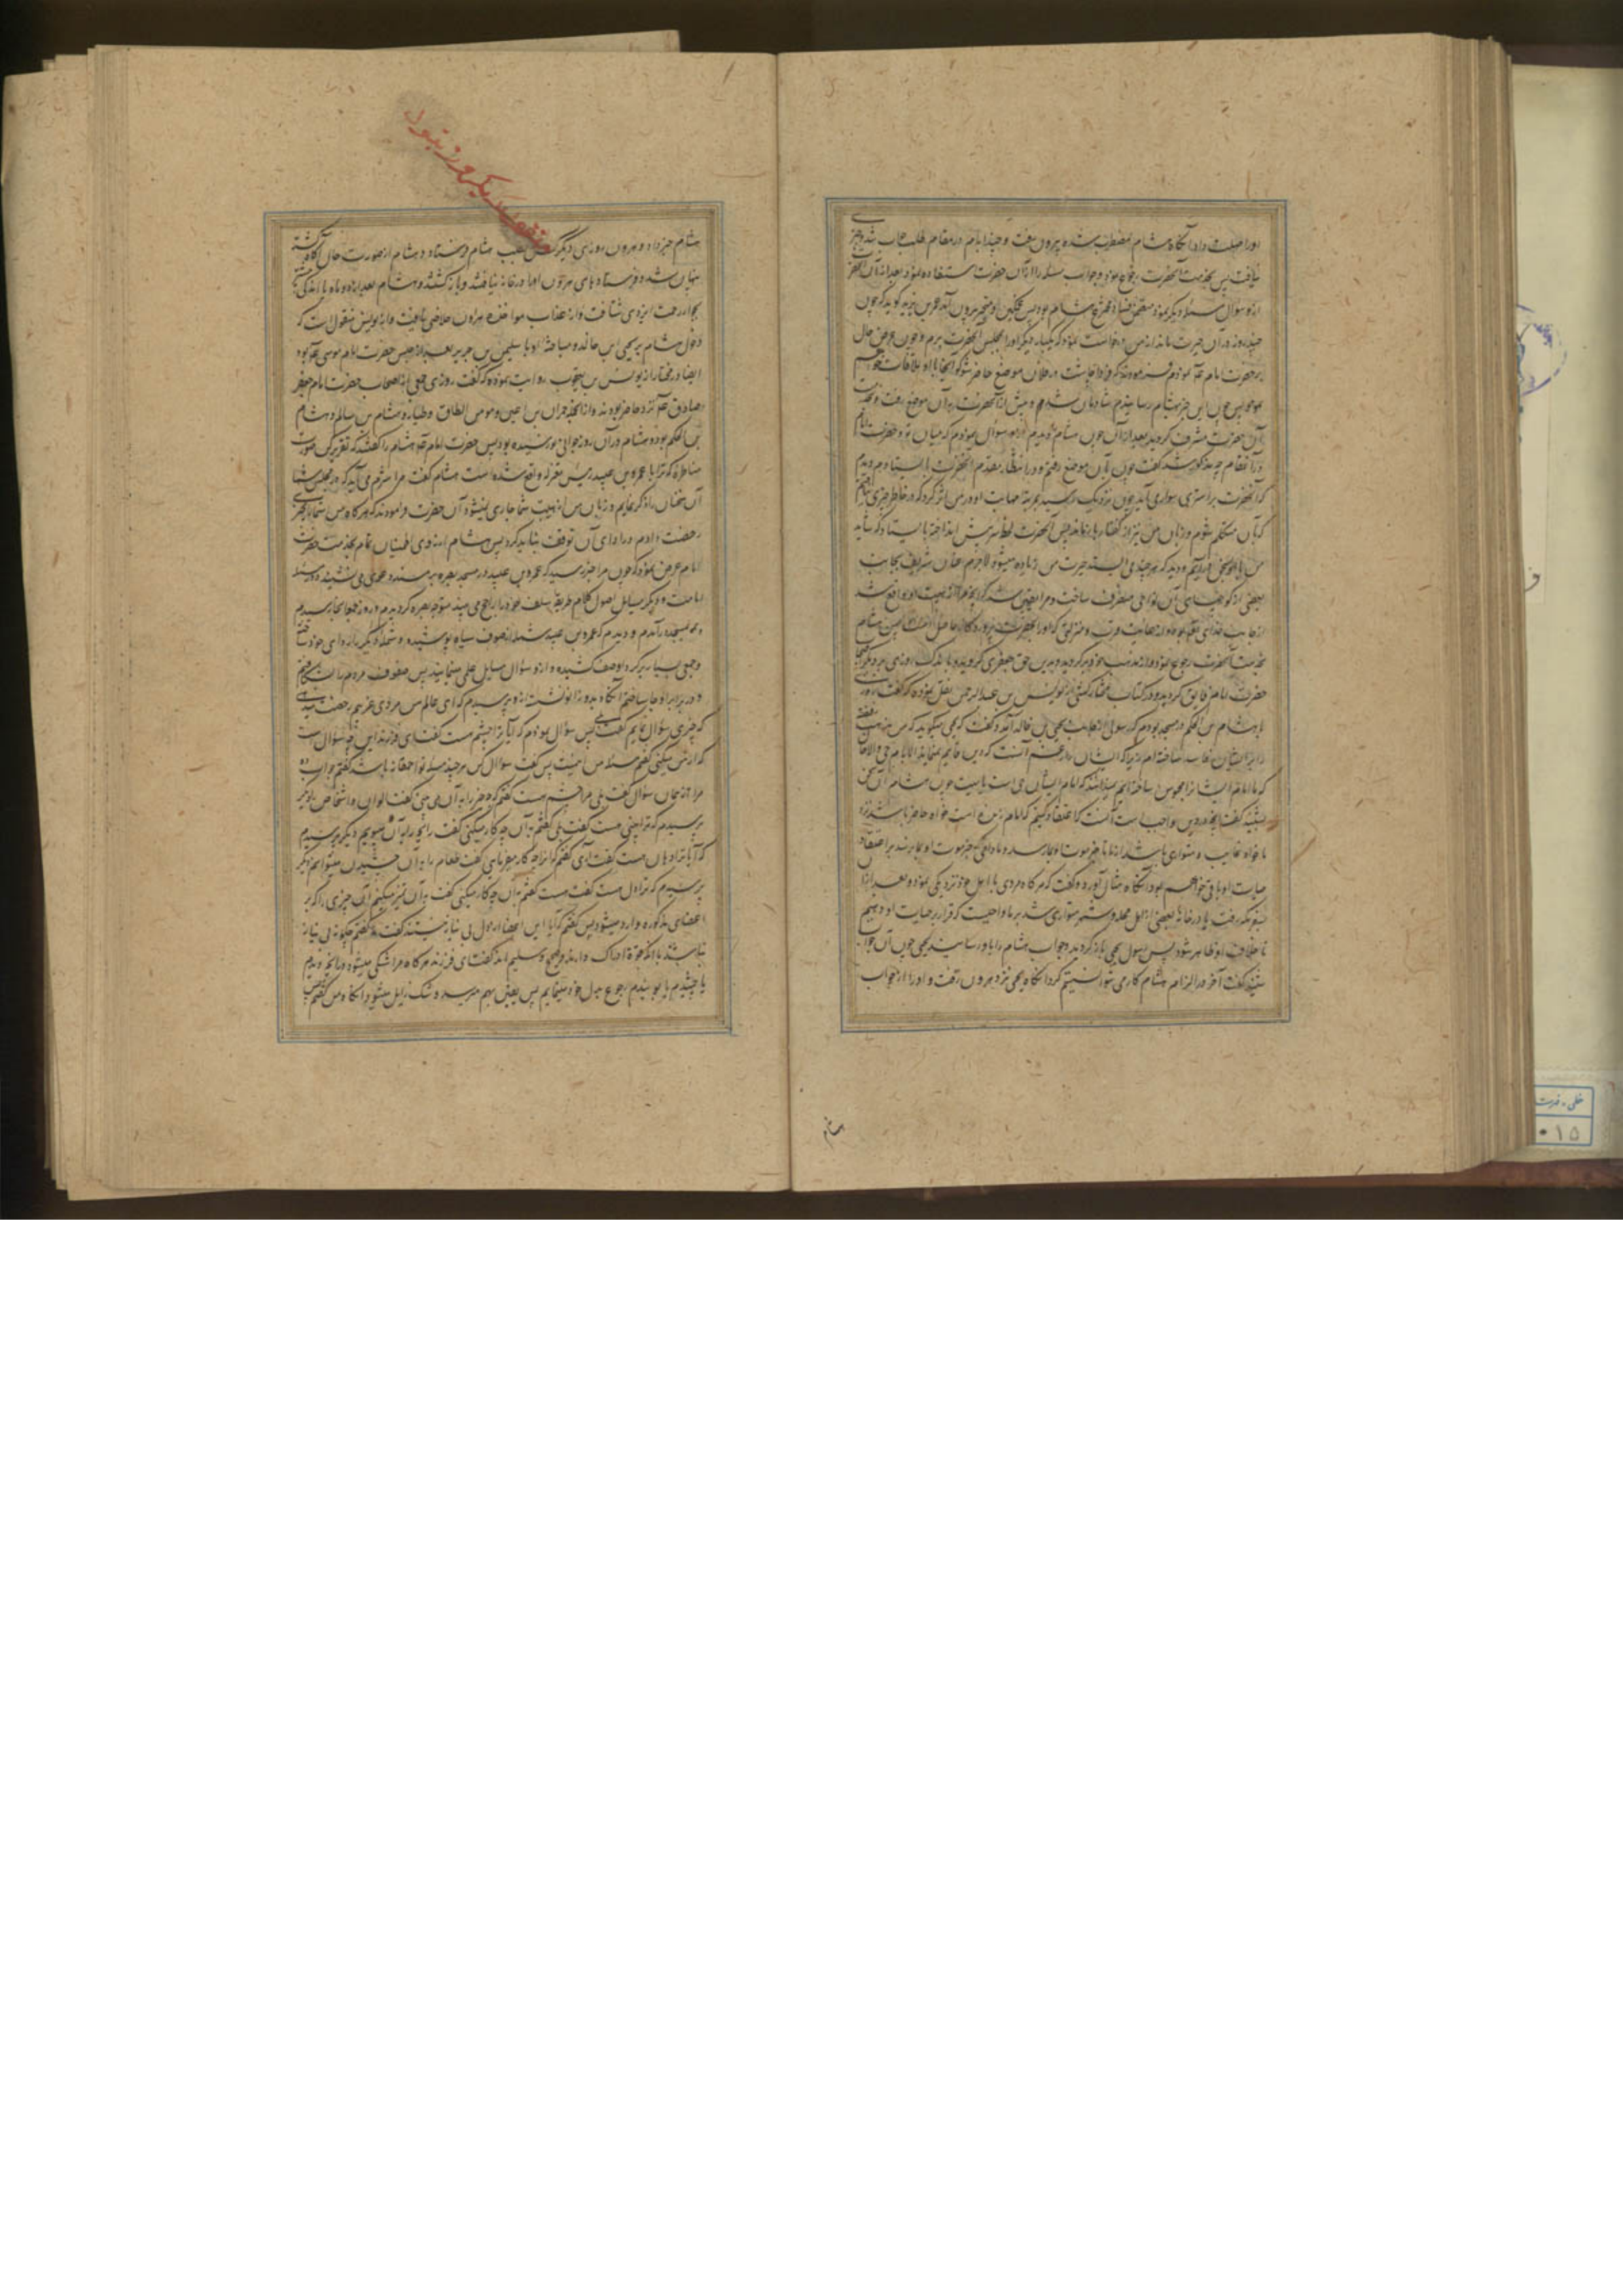 او را مهلت داد آنگاه هشام مضطرب شده بیرون رفت و چند ایام در مقام طلب جواب شد و چیزی
نیافت پس بخدمت آنحضرت رجوع نمود و جواب مسئله را از آن حضرت استفاده نمود بعد از آن آنحضرت
ازو سؤال مسئله دیگر نمود هشام بود پس غمگین و متحیر بیرون آمد عمر بن یزید گوید که چون
چند روز در آن حیرت ماند از من درخواست نمود که یکبار دیگر او را بمجلس آنحضرت برم و چون عرض حال
بر حضرت امام نمودم فرمودند که فردا چاشت در فلان موضع حاضر شو که آنجا با او ملاقات خواهیم
نمود پس چون این خبر بهشام رسانیدم شادمان شد و پیش از آنحضرت به آن موضع رفت و بخدمت
آن حضرت مشرف گردید بعد از آن چون هشام را دیدم ازو سؤال نمودم که میان تو و حضرت امام
در آن مقام چه مذکور شد گفت چون بآن موضع رفتم و در انتظار مقدم آنحضرت بایستادم دیدم
که آنحضرت بر استری سواری آید چون نزدیک رسید مرتبه مهابت او در من اثر کرد که در خاطر چیزی نیافتم
که بآن متکلم شوم و زبان من نیز از گفتار بازماند پس آنحضرت لحظه سر پیش انداخته بایستاد که شاید
من با او سخن درآیم و دید که هر چند می ایستد حیرت من زیاده میشود لاجرم عنان شریف بجانب
بعضی از کوچهای آن نواحی منصرف ساخت و مرا یقین شد که آنچه مرا از هیبت او واقع شد
از جانب خدای تعالی بود و از غایت قرب و منزلتی که او را بحضرت پروردگار حاصل است پس هشام
بخدمت آنحضرت رجوع نمود و از مذهب خود برگردید و بدین حق جعفری گروید و باندک روزی بر دیگر اصحاب
حضرت امام فایق گردید و در کتاب مختار کشی از یونس بن عبدالرحمن نقل نموده که گفت روزی
با هشام بن الحکم در مسجد بودم که رسولی از جانب یحیی بن خالد آمد و گفت که یحیی میگوید که من مذهب رفضه
را بر ایشان فاسد ساخته ام زیرا که ایشان را زعم آنست که دین قایم نمیماند الا بامام حی و الآن
که ما امام ایشانرا محبوس ساخته ایم نمیدانند که امام ایشان حی است یا میت چون هشام آن سخن
بشنید گفت آنچه در دین واجب است آنست که اعتقاد کنیم که امام زنده است خواه حاضر باشد نزد
ما خواه غایب و متواری باشد از ما تا خبر موت او بما رسد و مادامکه خبر موت او بما نرسد بر اعتقاد
حیات او باقی خواهیم بود آنگاه مثال آورده گفت که هر گاه مردی با اهل خود نزدیکی نموده بعد از آن
بسفر مکه رفت یا در خانه بعضی از اهل محله و شهر متواری شد بر ما واجبست که قرار بر حیات او دهیم
تا خلاف او ظاهر شود پس رسول یحیی باز گردید و جواب هشام را باو رسانید یحیی چون آن جواب
شنید گفت آخر در الزام هشام کاری نتوانستیم کرد آنگاه یحیی نزد هرون رفت و او را از جواب
هشام
هشام خبر داد و هرون روزی دیگر کس بطلب هشام فرستاد و هشام از صورت حال آگاه گشته
پنهان شد و فرستادهای هرون او را در خانه نیافتند و باز گشتند و هشام بعد از دو ماه یا اندکی
بجوار رحمت ایزدی شتافت و از عذاب مؤاخذه هرون خلاصی یافت و از یونس منقول است که
دخول هشام بر یحیی بن خالد و مباحثه او با سلیمن بن جریر بعد از حبس حضرت امام موسی بود
ایضا در مختار از یونس بن یعقوب روایت نموده که گفت روزی جمعی از اصحاب حضرت امام جعفر
صادق نزد حاضر بودند و از آنجمله حمران بن اعین و مؤمن الطاق و طیار و هشام بن سالم و هشام
بن الحکم بود و هشام در آن روز جوانی نورسیده بود پس حضرت امام هشام را گفتند که تقریر کن صورت
مناظره که ترا با عمرو بن عبید رئیس معتزله واقع شده است هشام گفت مرا شرم می آید که در مجلس شما
آن سخنان را ذکر نمایم و زبان من از هیبت شما جاری نمیشود آن حضرت فرمودند که هر گاه من شما را بچیزی
رخصت دادم در ادای آن توقف نباید کرد پس هشام از روی اطمینان تمام بخدمت حضرت
امام عرض نمود که چون مرا خبر رسید که عمرو بن عبید در مسجد بصره بر مسند دعوی می نشیند و در مسئله
امامت و دیگر مسایل اصول کلام طریقه سلف خود را راجع می بیند متوجه بصره گردیدم و روز جمعه بآنجا رسیدم
و به مسجد درآمدم و دیدم که عمرو بن عبید شمله از صوف سیاه پوشیده و شمله دیگر ردای خود ساخته
و جمعی بسیار برگرد او صف کشیده و ازو سؤال مسایل علمی مینمایند پس صفوف مردم را شکافتم
و در برابر او جا ساختم آنگاه بدو زانو نشسته ازو پرسیدم که ای عالم من مردی غریبم رخصت میدهی
که چیزی سؤال نمایم گفت بلی پس سؤال نمودم که آیا ترا چشم هست گفت ای فرزند این چه سؤال است
که از من میکنی گفتم مسئله من اینست پس گفت سؤال کن هر چند مسئله تو احمقانه باشد گفتم جواب ده
مرا از همان سؤال گفت بلی مرا چشم هست گفتم که چه چیز را به آن می بینی گفت الوان و اشخاص دیگر
پرسیدم که ترا بینی هست گفت بلی گفتم به آن چه کار میکنی گفت رایحه را به آن میبویم دیگر پرسیدم
که آیا ترا دهان هست گفت آری گفتم که از او چه کار میفرمایی گفت طعام را به آن چشیدن میتوانم دیگر
پرسیدم که ترا دل هست گفت هست گفتم به آن چه کار میکنی گفت به آن تمیز میکنم آن چیزی را که بر
اعضای مذکوره وارد میشود پس گفتم که آیا این اعضا از دل بی نیاز نیستند گفت نه گفتم چگونه بی نیاز
نباشند با آنکه قوة ادراک دارند و صحیح و سلیم اند گفت ای فرزند هر گاه مرا شکی میشود در آنچه دیدم
یا چشیدم یا بوییدم رجوع بدل خود مینمایم پس یقین بهم میرسد و شک زایل میشود آنگاه من گفتم پس